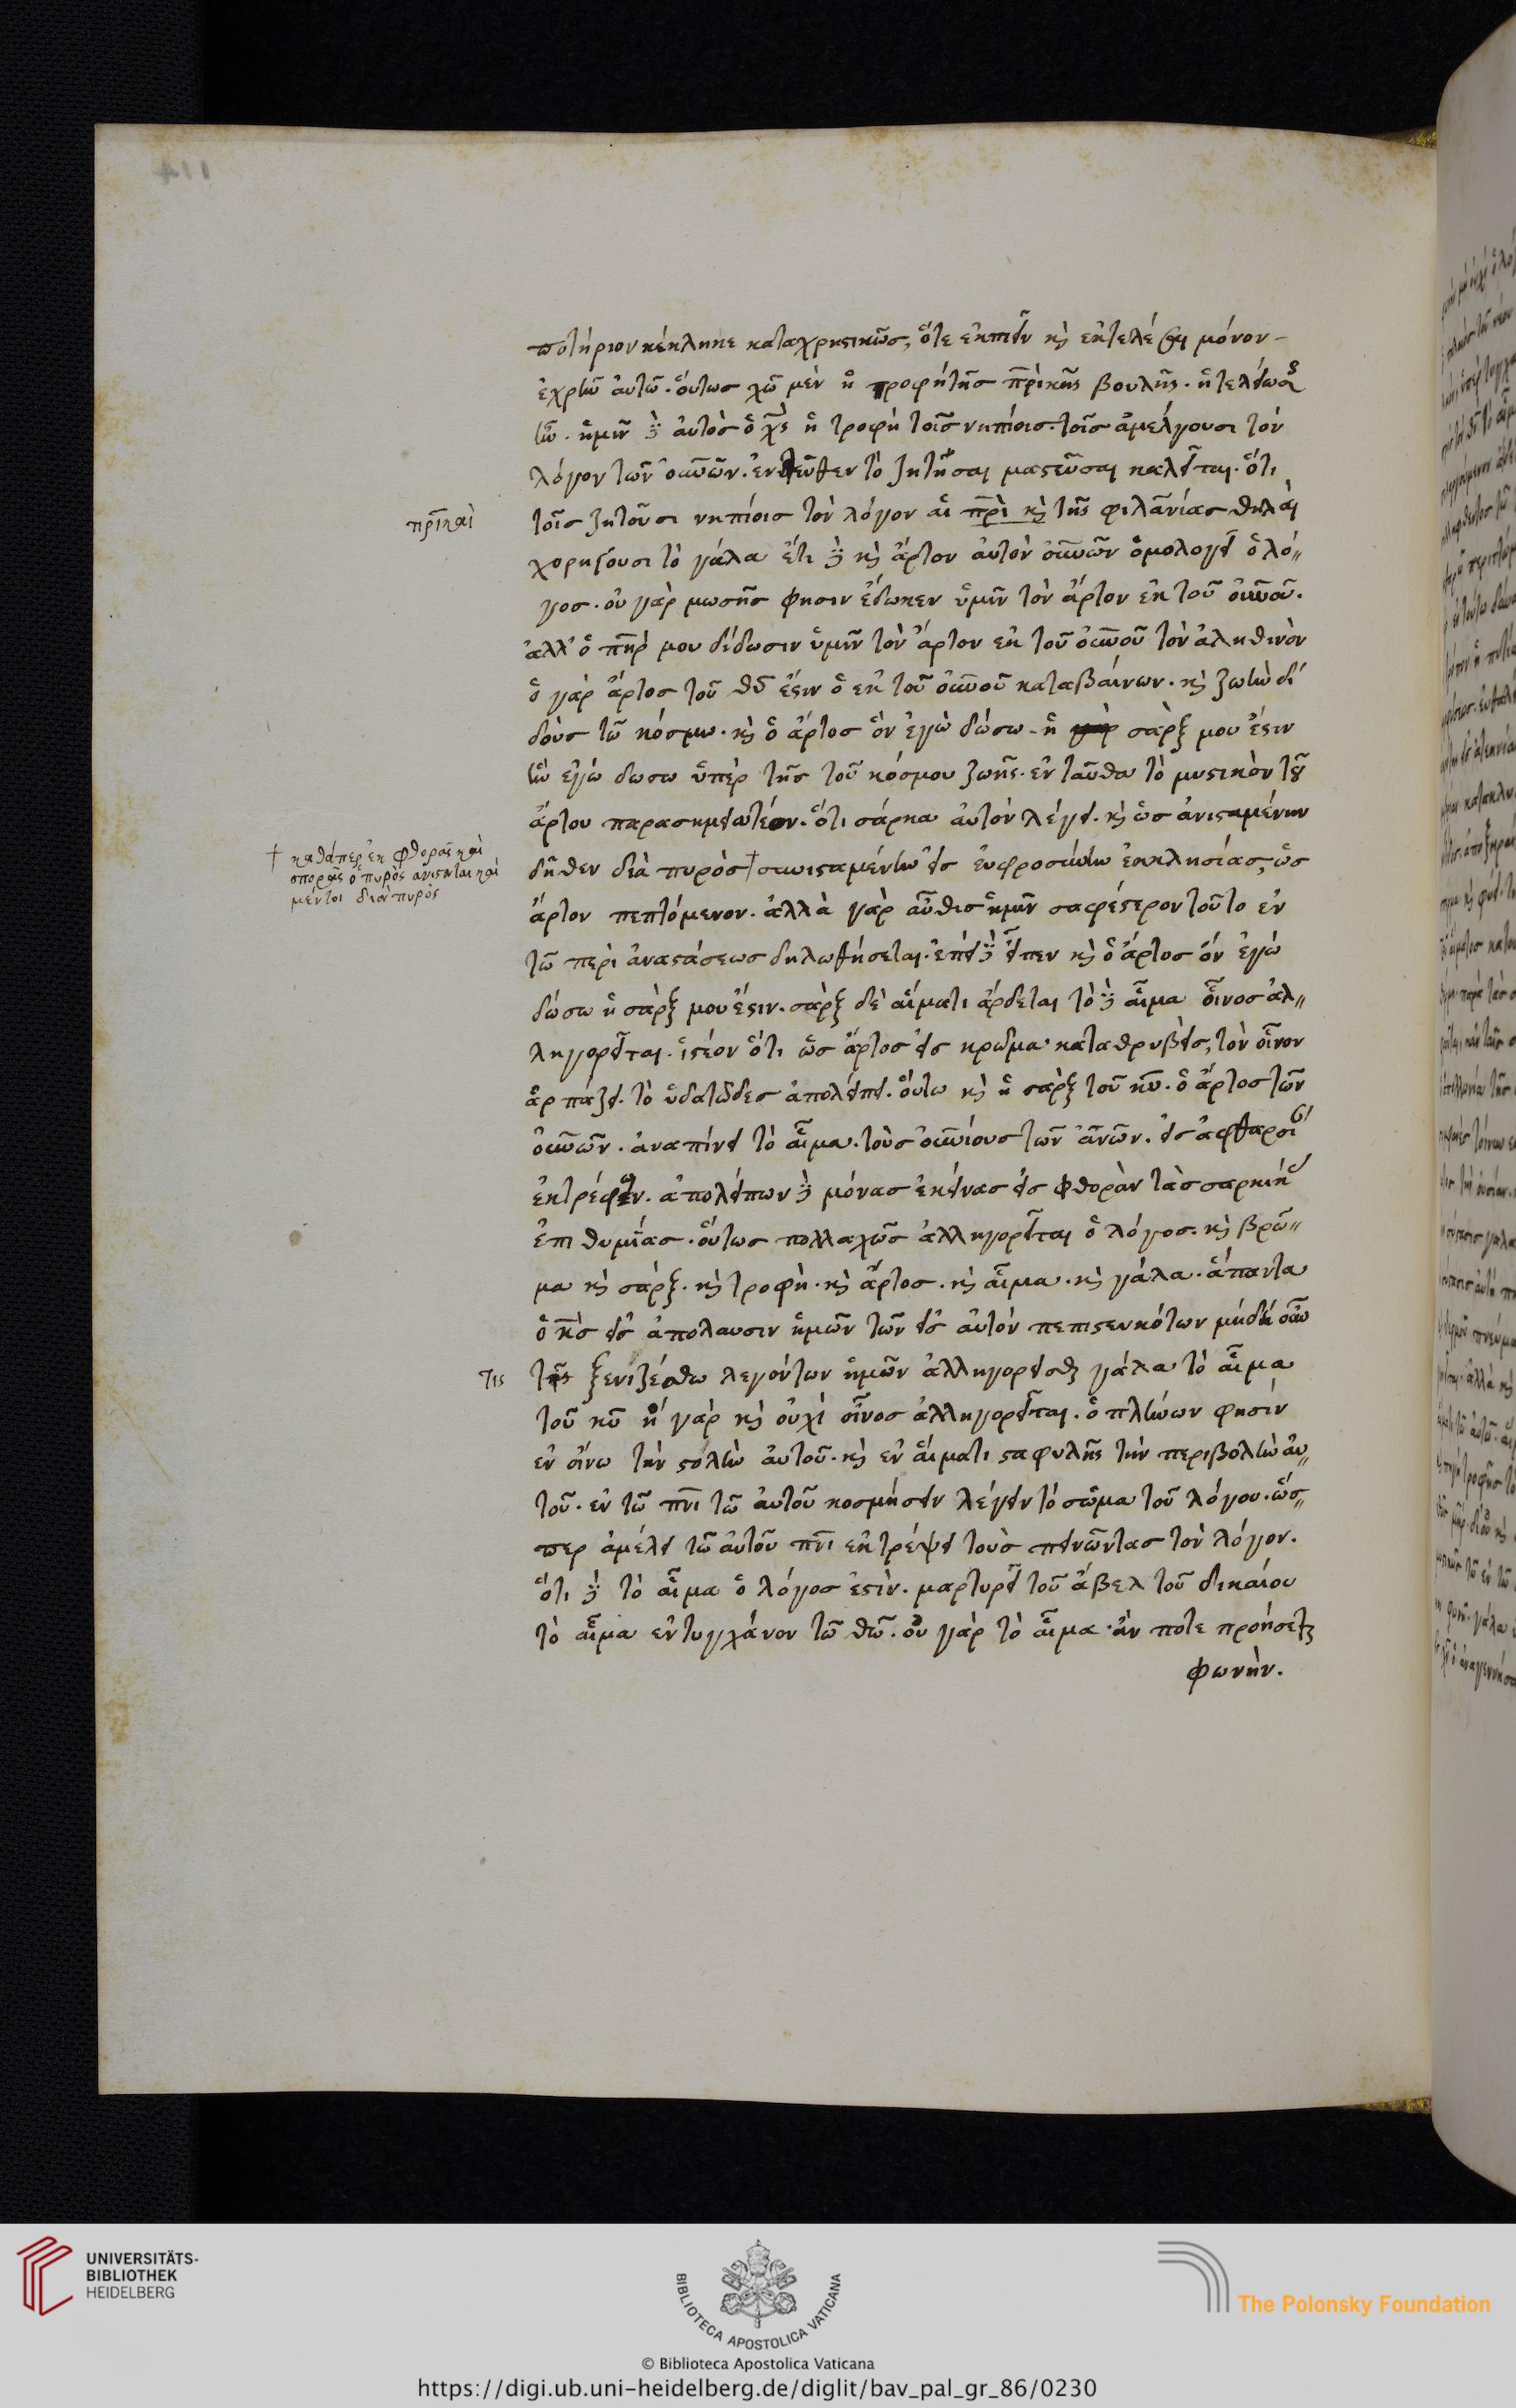 ποτήριον κέκληκε καταχρηστικῶς, ὅτε ἐκπιεῖν κὶ ἐκτελέσαι μόνον
ἐχρῆν αὐτῶ. οὕτως χῶ μὲν ἡ τροφὴ τῆς π̅ρ̅ικῆς βουλῆς. ἡ τελείωσ
ἦν. ἡμῖν δὲ αὐτὸς ὁ χ̅ς̅ ἡ τροφὴ τοῖς νηπίοις. τοῖς ἀμέλγουσι τὸν
λόγον τῶν ο̅υ̅ν̅ῶν. ἐντεῦθεν τὸ ζητῆσαι μαστεῦσαι καλεῖται. ὅτι
τοῖς ζητοῦσι νηπίοις τὸν λόγον αἱ π̅ρ̅ὶ κὶ τῆς φιλα̅ν̅ίας θηλαὶ
π̅ρ̅ικαὶ
χορηγοῦσι τὸ γάλα ἔτι δὲ κὶ ἄρτον αὐτὸν ο̅υ̅ν̅ῶν ὁμολογεῖ ὁ λό〃
γος. οὐ γὰρ μωσῆς φησιν ἔδωκεν ὑμῖν τὸν ἄρτον ἐκ τοῦ ο̅υ̅ν̅οῦ.
ἀλλ' ὁ π̅η̅ρ̅ μου δίδωσιν ὑμῖν τὸν ἄρτον ἐκ τοῦ ο̅υ̅ν̅οῦ τὸν ἀληθινὸν
ὁ γὰρ ἄρτος τοῦ θ̅υ̅ ἐστιν ὁ ἐκ τοῦ ο̅υ̅ν̅οῦ καταβαίνων. κὶ ζωὴν δι
δοὺς τῶ κόσμω. κὶ ὁ ἄρτος ὃν ἐγὼ δώσω. ἡ σάρξ μου ἐστιν
ἣν ἐγώ δωσω ὑπὲρ τῆς τοῦ κόσμου ζωῆς. ἐνταῦθα τὸ μυστικὸν τοῦ
ἄρτου παρασημειωτέον. ὅτι σάρκα αὐτὸν λέγει. κὶ ὡς ἀνισταμένην
δῆθεν διὰ πυρὸς † συνισταμένην εἰς εὐφροσύνην ἐκκλησίας, ὡς
† καθάπερ ἐκ φθορᾶς καὶ
σπορᾶς ὁ πυρὸς ἀνίσταται καὶ
μέντοι διὰ πυρὸς
ἄρτον πεπτόμενον. ἀλλὰ γὰρ αὖθις ἡμῖν σαφέστερον τοῦτο ἐν
τῶ περὶ ἀναστάσεως δηλωθήσεται. ἐπεὶ δὲ εἶπεν κὶ ὁ ἄρτος ὃν ἐγὼ
δώσω ἡ σάρξ μου ἐστιν. σὰρξ δὲ αἵματι ἄρδεται τὸ δὲ αἷμα οἶνος ἀλ〃
ληγορεῖται. ἰστέον ὅτι ὡς ἄρτος εἰς κρᾶμα καταθρυβεὶς, τὸν οἶνον
ἁρπάζει. τὸ ὑδατῶδες ἀπολείπει. οὕτω κὶ ἡ σὰρξ τοῦ κ̅υ̅. ὁ ἄρτος τῶν
ο̅υ̅ν̅ῶν. ἀναπίνει τὸ αἷμα. τοὺς ο̅υ̅ν̅ίους τῶν α̅ν̅ων. εἰς ἀφθαρσί
ἐκτρέφων. ἀπολείπων δὲ μόνας ἐκείνας εἰς φθορὰν τὰς σαρκικ
ἐπιθυμίας. οὕτως πολλαχῶς ἀλληγορεῖται ὁ λόγος. κὶ βρῶ〃
μα κὶ σὰρξ. κὶ τροφὴ. κὶ ἄρτος. κὶ αἷμα. κὶ γάλα. ἅπαντα
ὁ κ̅ς̅ εἰς ἀπόλαυσιν ἡμῶν τῶν εἰς αὐτὸν πεπιστευκότων μὴ δὴ οὖν
τις ξενιζέσθω λεγόντων ἡμῶν ἀλληγορεῖσθαι γάλα τὸ αἷμα
τις
τοῦ κ̅υ̅ ἢ γὰρ κὶ οὐχὶ οἶνος ἀλληγορεῖται. ὁ πλύνων φησὶν
ἐν οἴνω τὴν στολὴν αὐτοῦ. κὶ ἐν αἵματι σταφυλῆς τὴν περιβολὴν αὐ〃
τοῦ. ἐν τῶ π̅ν̅ι τῶ αὐτοῦ κοσμήσειν λέγειν τὸ σῶμα τοῦ λόγου. ὥσ〃
περ ἀμέλει τῶ αὐτοῦ π̅ν̅ι ἐκτρέψει τοὺς πεινῶντας τὸν λόγον.
ὅτι δὲ τὸ αἷμα ὁ λόγος ἐστὶν. μαρτυρεῖ τοῦ ἄβελ τοῦ δικαίου
τὸ αἷμα ἐντυγχάνον τῶ θ̅ῶ. οὐ γὰρ τὸ αἷμα. ἄν ποτε προήσεται
φωνήν.
UNIVERSITÄTS-
BIBLIOTHEK
HEIDELBERG
BIBLIOTECA APOSTOLICA VATICANA
The Polonsky Foundation
© Biblioteca Apostolica Vaticana
https://digi.ub.uni-heidelberg.de/diglit/bav_pal_gr_86/0230